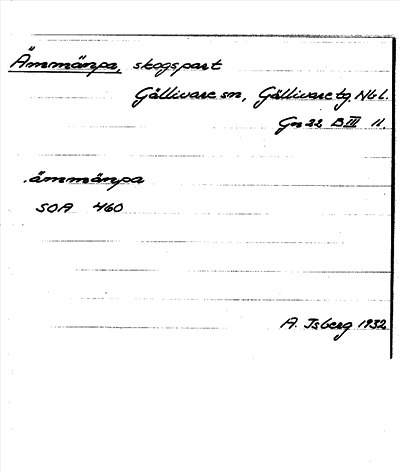 Ämmänpa, skogspart
Gällivare sn, Gällivare tg. Nbl.
Gn 22 B III 11.
.ämmänpa
SOA 460
A. Isberg 1932